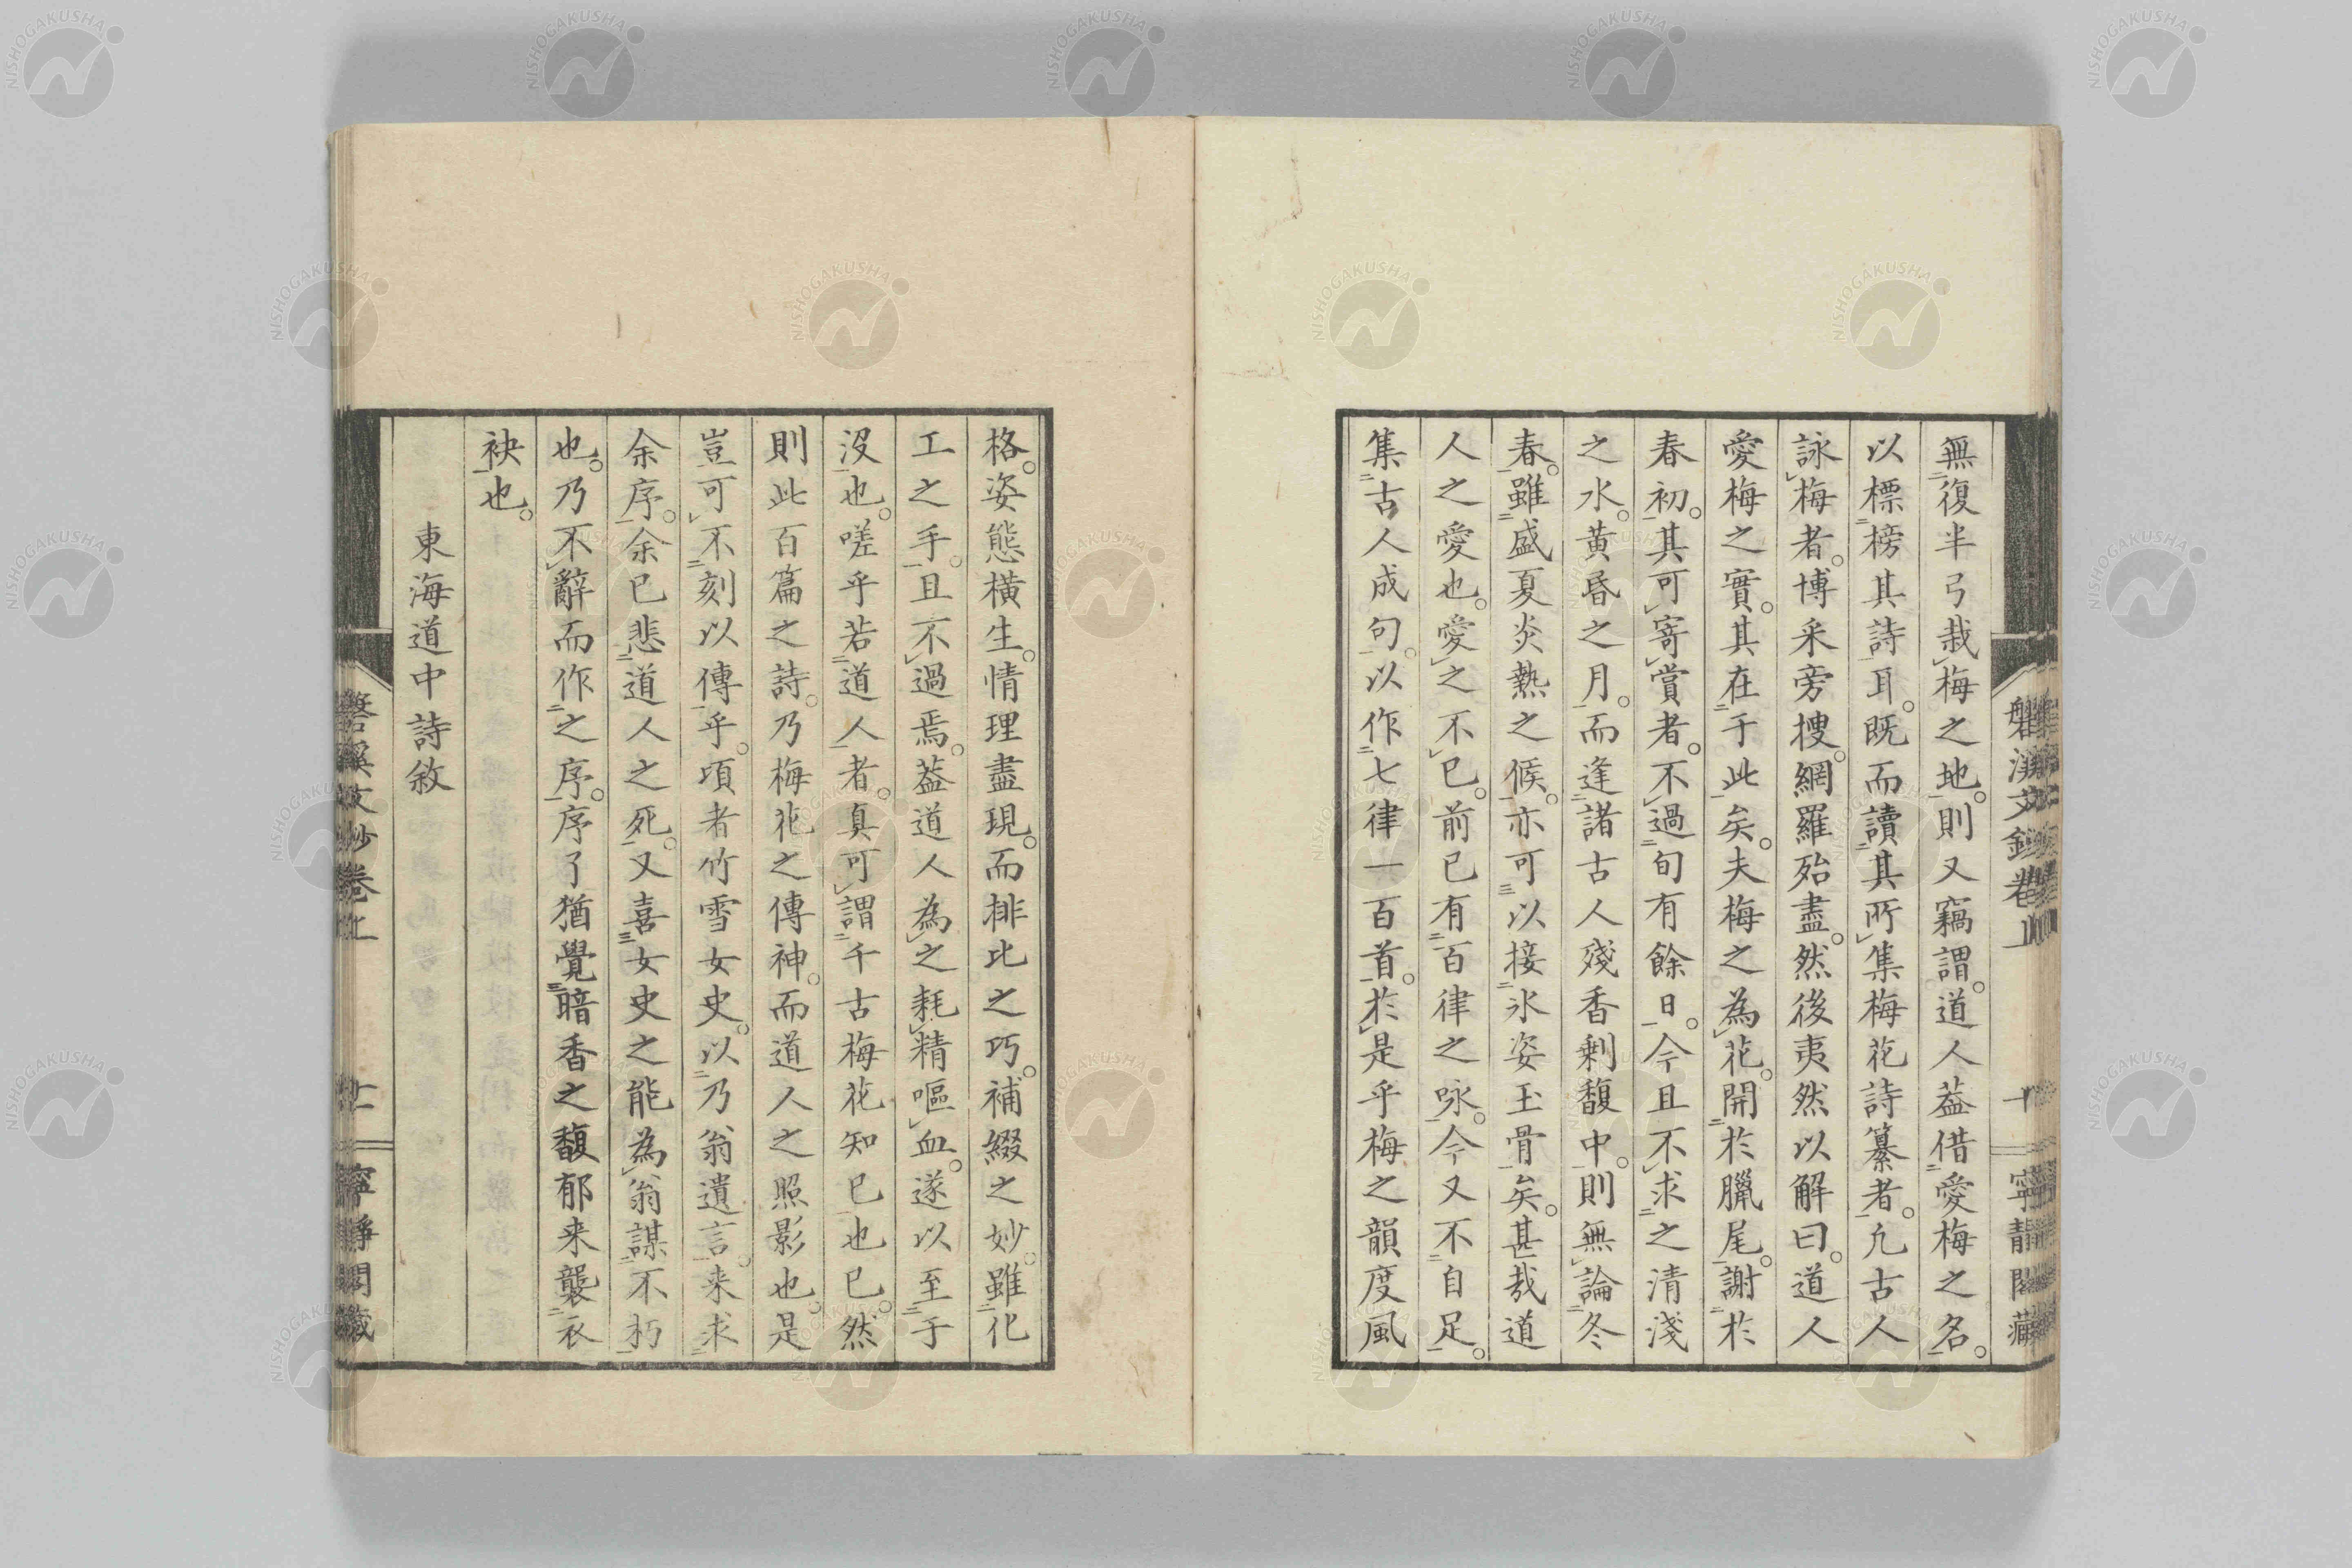 無復半弓栽梅之地。則又竊謂。道人葢借愛梅之名。
以標榜其詩耳。既而讀其所集梅花詩纂者。凢古人
詠梅者。博采旁搜。網羅殆盡。然後夷然以解曰。道人
愛梅之實。其在于此矣。夫梅之為花。開於臘尾。謝於
春初。其可寄賞者。不過旬有餘日。今且不求之清淺
之水。黃昏之月。而逢諸古人殘香剩馥中。則無論冬
春。雖盛夏炎熱之候。亦可以接氷姿玉骨矣。甚哉道
人之愛也。愛之不已。前已有百律之咏。今又不自足。
集古人成句。以作七律一百首。於是乎梅之韻度風
格。姿態橫生。情理盡現。而排比之巧。補綴之妙。雖化
工之手。且不過焉。葢道人為之耗精嘔血。遂以至于
沒也。嗟乎若道人者。真可謂千古梅花知已也已。然
則此百篇之詩。乃梅花之傳神。而道人之照影也。是
豈可不刻以傳乎。頃者竹雪女史。以乃翁遺言。来求
余序。余已悲道人之死。又喜女史之能為翁謀不朽
也。乃不辭而作之序。序了猶覺暗香之馥郁来襲衣
袂也。
東海道中詩敘
磐溪文鈔卷上
寧靜閣藏
NISHOGAKUSHA